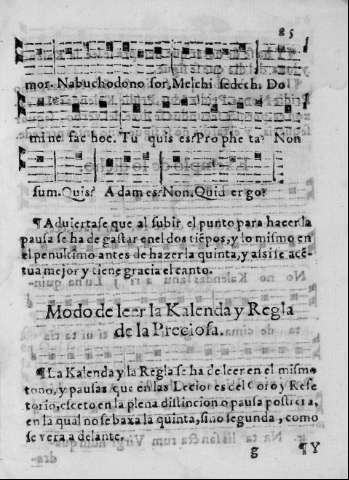 85
mor. Nabuchodono sor, Melchi sedech. Do
mi ne fac hoc. Tu quis es? Pro phe ta? Non
sum. Quis? Adam es? Non. Quid er go?
¶ Aduiertase que al subir el punto para hacer la
pausa se ha de gastar en el dos tiẽpos, y lo mismo en
el penultimo antes de hazer la quinta, y assi se acẽ-
tua mejor y tiene gracia el canto.
Modo de leer la Kalenda y Regla
de la Preciosa.
¶ La Kalenda y la Regla se ha de leer en el mismo
tono, y pausas que en las Leciones del Coro y Refe-
torio, esceto en la plena distincion o pausa postrera,
en la qual no se baxa la quinta, sino segunda, como
se vera adelante.
g ¶ Y